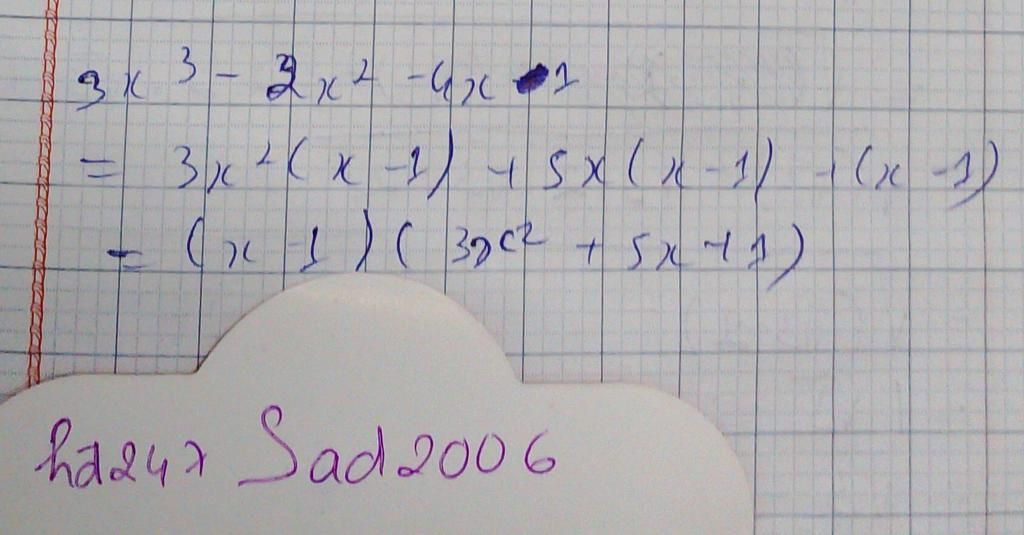 3x³ - 2x² - 4x - 1
= 3x²(x - 1) + 5x(x - 1) + (x - 1)
= (x - 1)(3x² + 5x + 1)
hd247 Sad2006